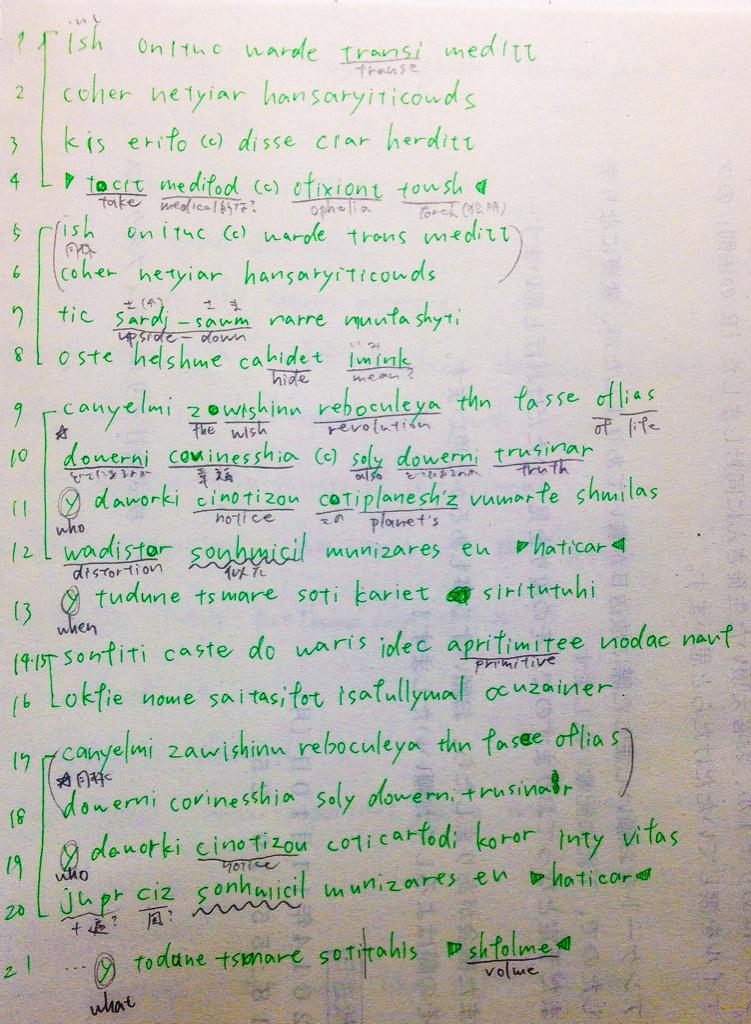 1 ish onituc warde transi meditt
transe
2 coher netyiar hansaryiticowds
3 kis erifo (c) disse crar herditt
4 tocit medifod (c) ofixiont toush
take medical ? ophelia torch
5 ish onituc (c) warde trans meditt
6 coher netyiar hansaryiticowds
7 tic sardj-sawm narre muntashyti
upside-down
8 oste helshme cahidet imink
hide mean?
9 canyelmi zowishinu reboculeya thn fasse oflias
the wish revolution of life
10 dowerni covinesshia (c) soly dowerni trusinar
also truth
11 y daworki cinotizou cotiplanesh'z vumarte shmilas
who notice planet's
12 wadistor sonhmicil munizares en haticar
distortion
13 y tudune tsmare soti kariet siritutuhi
when
14.15 sonfiti caste do waris idec aprifimitee nodac navt
primitive
16 okfie nome saitasifot isafullymal ocuzainer
17 canyelmi zawishinu reboculeya thn fasee oflias
18 dowerni corinesshia soly dowerni trusinar
19 y daworki cinotizou coticartodi koror inty vitas
who notice
20 jupr ciz sonhmicil munizares en haticar
21 ... y todune tsmare sotitahis shfolme
what volme